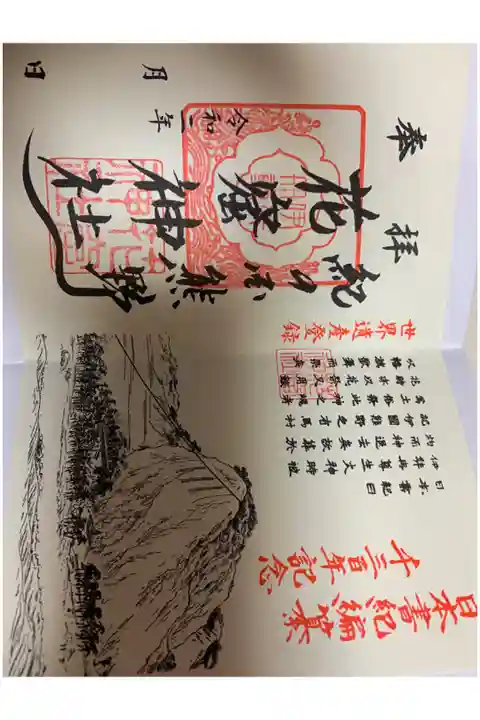 日本書紀編纂
千三百年記念
日本書紀曰
伊弉冉尊生火神時被
灼而神退去矣故葬於
紀伊國熊野之有馬村
焉土俗祭此神之魂者
花時亦以花祭又用鼓
吹幡旗歌舞而祭矣
世界遺産登録
奉拝
熊野
花窟神社
令和二年
月
日